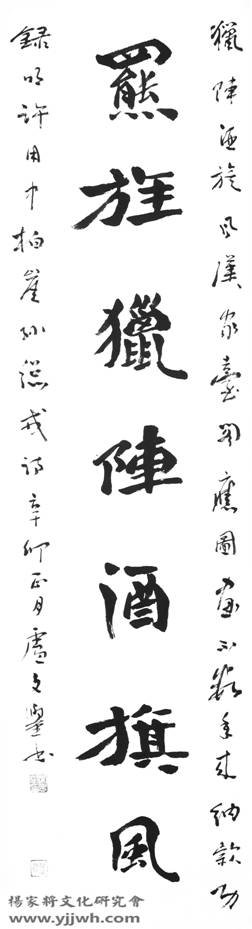 獵陣酒旗風漢家臺閣應圖畫不數年來納款功
羆旌獵陣酒旗風
錄明許用中柏崖孙總戎詩辛卯正月盧文書
楊家將文化研究會
www.yjjwh.com